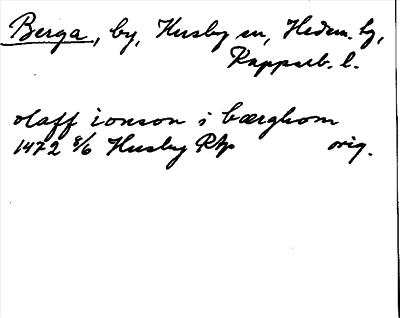 Berga, by, Husby sn, Hedem. tg,
Kopparb. l.
olaff ionson i bærghom
1472 8/6 Husby Rtp orig.